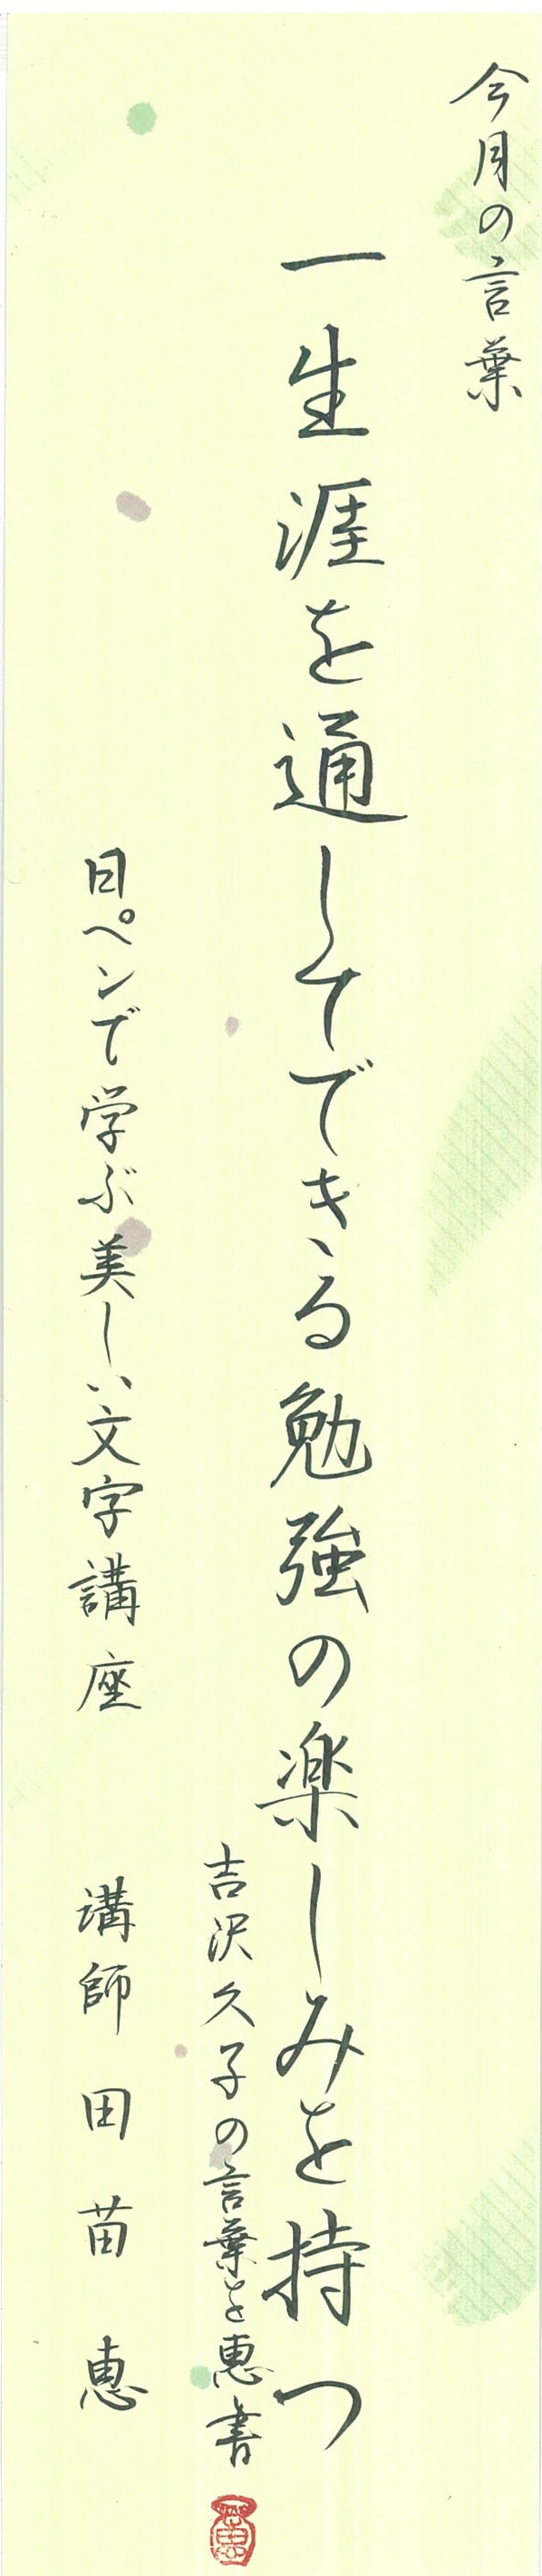 今月の言葉
一生涯を通してできる勉強の楽しみを持つ
吉沢久子の言葉を恵書
日ペンで学ぶ美しい文字講座
講師 田苗恵